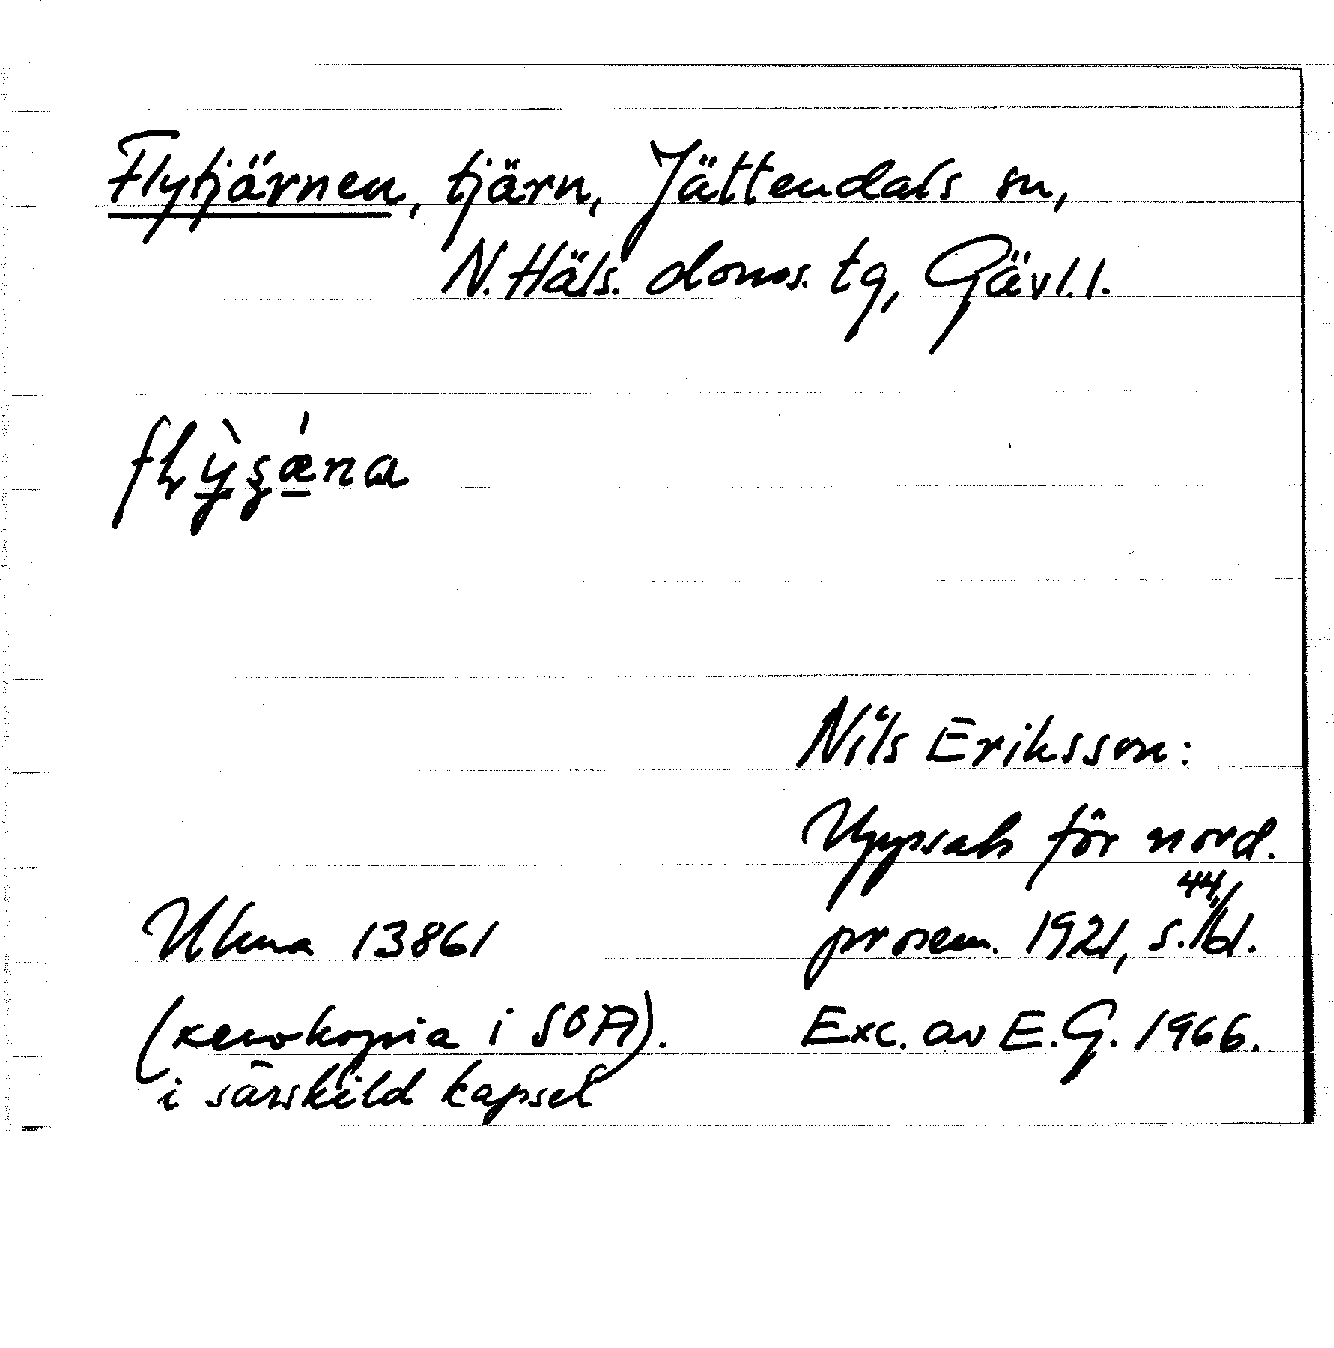 Flytjärnen, tjärn, Jättendals sn,
N. Häls. doms. tg, Gävl. l.
Nils Eriksson:
Uppsats för nord.
prosem. 1921, s. 44
Ulma 13861
(xerokopia i SOA).
i särskild kapsel
Exc. av E.G. 1966.